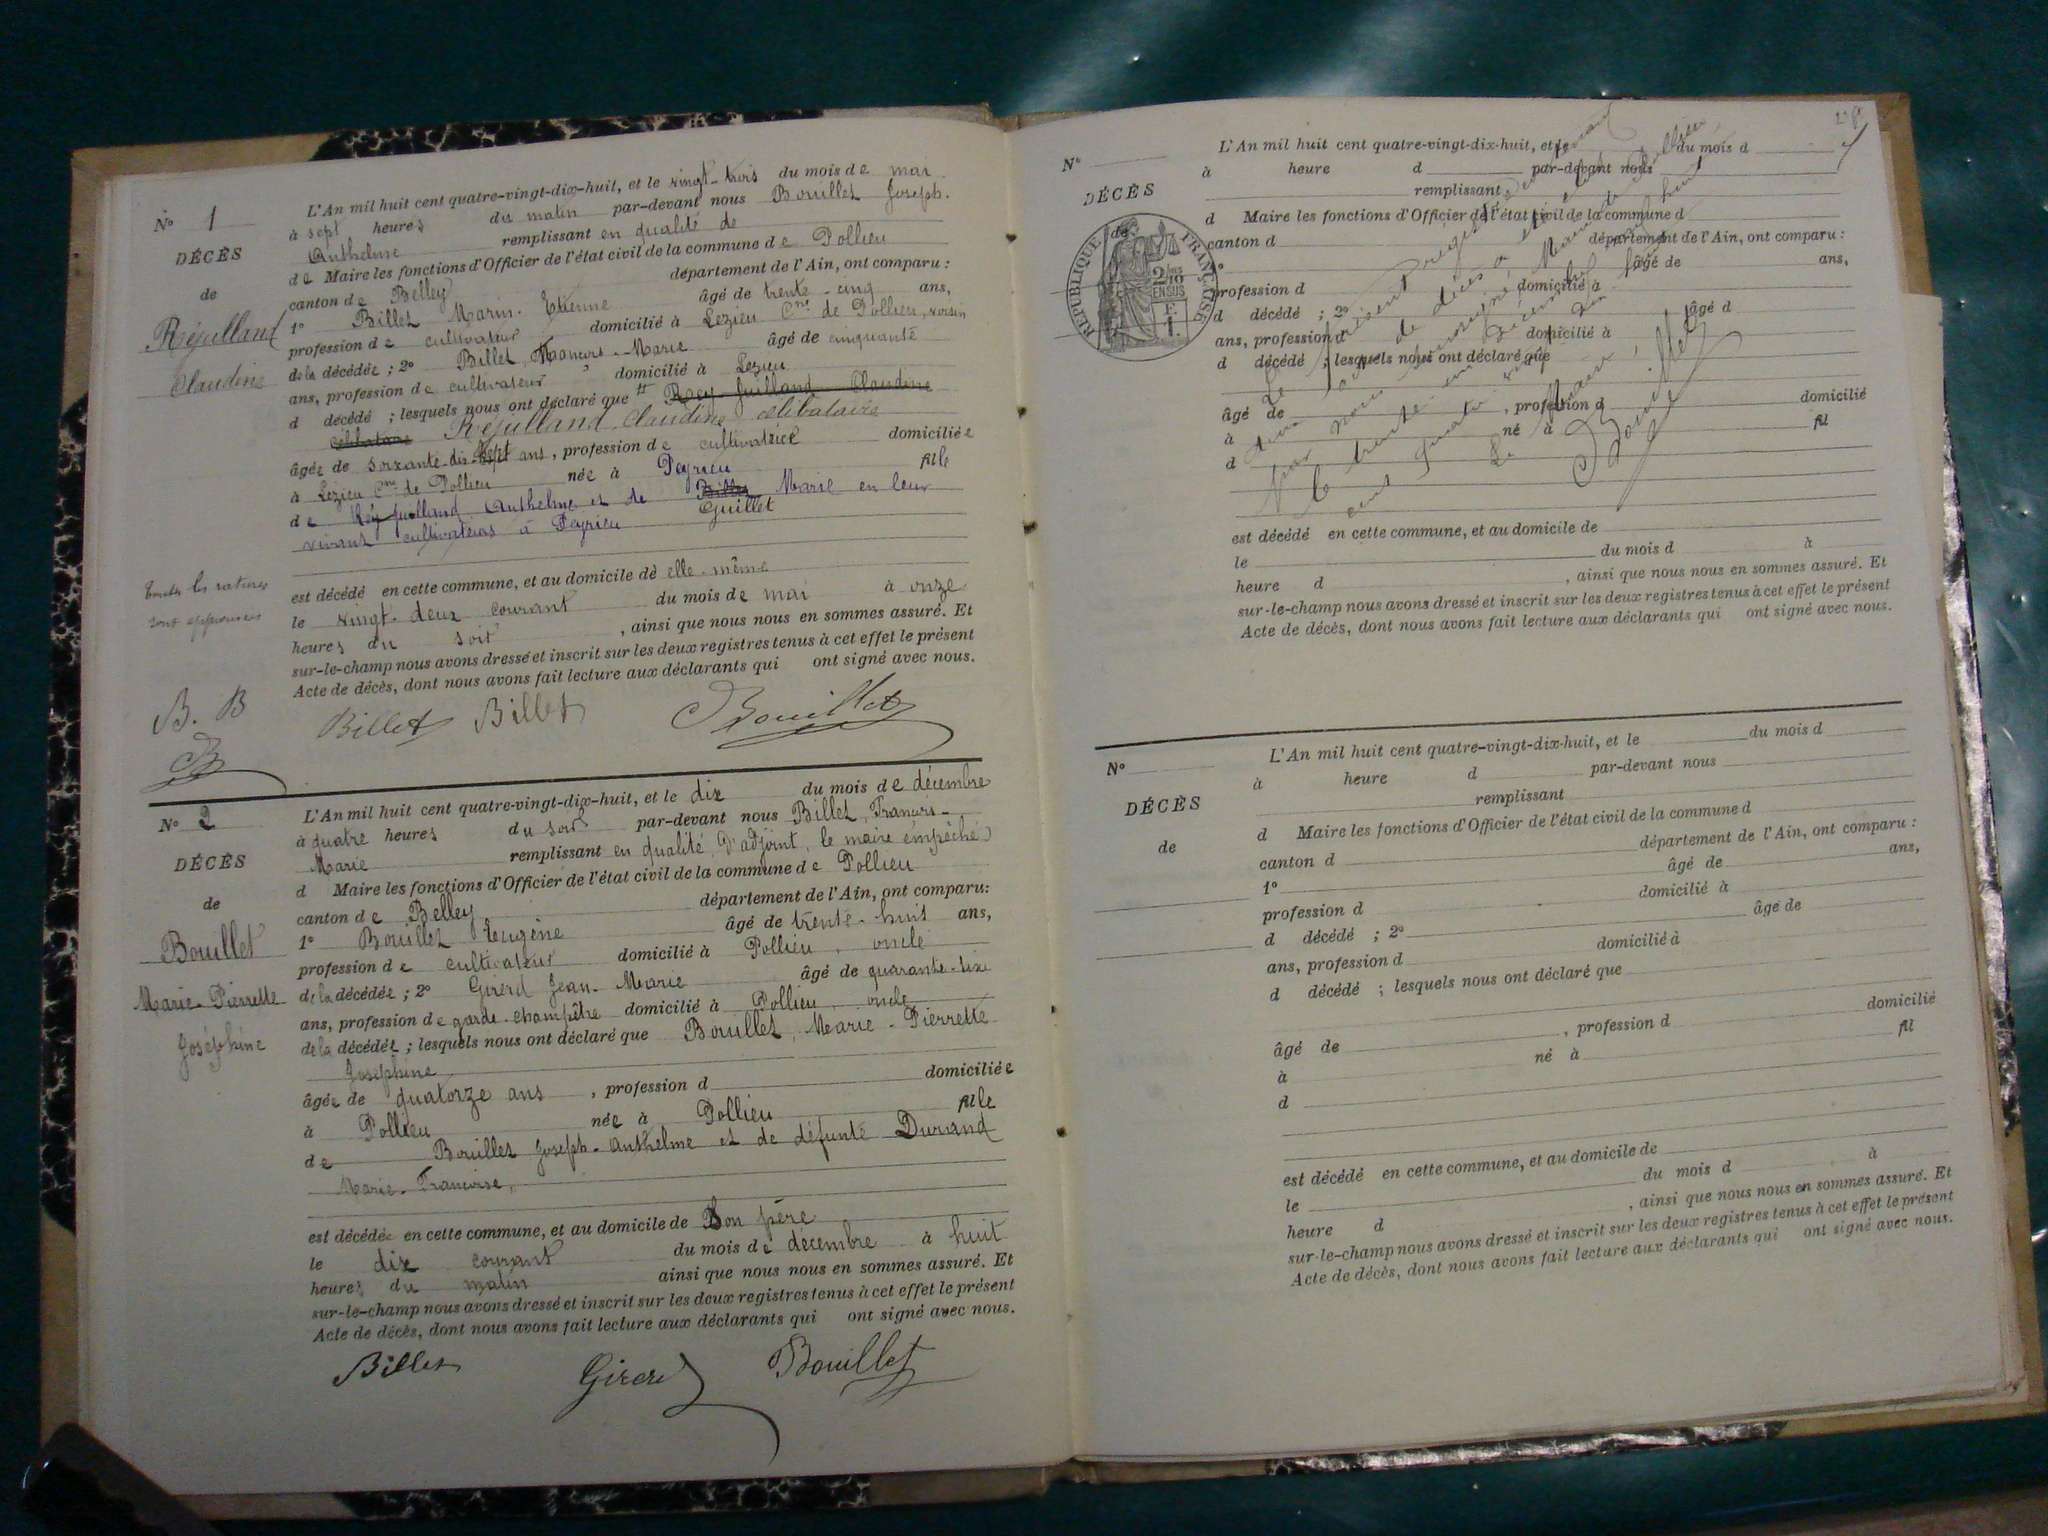 N° 1
DÉCÈS
de
Réjulland
Claudine
L'An mil huit cent quatre-vingt-dix-huit, et le vingt-trois du mois de mai
à sept heures du matin par-devant nous Bouillet Joseph.
Anthelme remplissant en qualité de
de Maire les fonctions d'Officier de l'état civil de la commune de Pollieu
canton de Belley département de l'Ain, ont comparu :
1° Billet Marin. Etienne âgé de trente-cinq ans,
profession de cultivateur domicilié à Lezieu Cne de Pollieu, voisin
de la décédée ; 2° Billet, François-Marie âgé de cinquante
ans, profession de cultivateur domicilié à Lezieu
d décédé ; lesquels nous ont déclaré que Rey-Juilland Claudine
célibataire Réjulland Claudine célibataire
âgée de soixante-dix-sept ans, profession de cultivatrice domiciliée
à Lezieu Cne de Pollieu née à Peyrieu fille
de Réjulland Anthelme et de Billet Marie en leur
Guillet
vivant cultivateurs à Peyrieu
est décédé en cette commune, et au domicile de elle-même
le vingt-deux courant du mois de mai à onze
heures du soir , ainsi que nous nous en sommes assuré. Et
sur-le-champ nous avons dressé et inscrit sur les deux registres tenus à cet effet le présent
Acte de décès, dont nous avons fait lecture aux déclarants qui ont signé avec nous.
Toutes les ratures
sont approuvées
B. B
B
Billet Billet Bouillet
N° 2
DÉCÈS
de
Bouillet
Marie-Pierrette
Joséphine
L'An mil huit cent quatre-vingt-dix-huit, et le dix du mois de décembre
à quatre heures du soir par-devant nous Billet, François-
Marie remplissant en qualité d'adjoint, le maire empêché
d Maire les fonctions d'Officier de l'état civil de la commune de Pollieu
canton de Belley département de l'Ain, ont comparu:
1° Bouillet Eugène âgé de trente-huit ans,
profession de cultivateur domicilié à Pollieu, oncle
de la décédée ; 2° Girerd Jean-Marie âgé de quarante-six
ans, profession de garde-champêtre domicilié à Pollieu, oncle
de la décédée ; lesquels nous ont déclaré que Bouillet, Marie-Pierrette
Joséphine
âgée de quatorze ans , profession d domiciliée
à Pollieu née à Pollieu fille
de Bouillet Joseph-Anthelme et de défunte Durand
Marie-Françoise,
est décédée en cette commune, et au domicile de son père
le dix courant du mois de décembre à huit
heures du matin ainsi que nous nous en sommes assuré. Et
sur-le-champ nous avons dressé et inscrit sur les deux registres tenus à cet effet le présent
Acte de décès, dont nous avons fait lecture aux déclarants qui ont signé avec nous.
Billet Girerd Bouillet
N°
DÉCÈS
de
RÉPUBLIQUE FRANÇAISE
2/10
EN SUS
L'An mil huit cent quatre-vingt-dix-huit, et le du mois d
à heure d par-devant nous
remplissant
d Maire les fonctions d'Officier de l'état civil de la commune d
canton d département de l'Ain, ont comparu :
1° âgé de ans,
profession d domicilié à
d décédé ; 2° âgé d
ans, profession d domicilié à
d décédé ; lesquels nous ont déclaré que
âgé de , profession d domicilié
à né à fil
d
Le présent registre
de décès a été clos
par nous soussigné Maire de Pollieu,
le trente et un Décembre mil huit
cent quatre vingt dix huit
Le Maire,
Bouillet
est décédé en cette commune, et au domicile de
le du mois d à
heure d , ainsi que nous nous en sommes assuré. Et
sur-le-champ nous avons dressé et inscrit sur les deux registres tenus à cet effet le présent
Acte de décès, dont nous avons fait lecture aux déclarants qui ont signé avec nous.
N°
DÉCÈS
de
L'An mil huit cent quatre-vingt-dix-huit, et le du mois d
à heure d par-devant nous
remplissant
d Maire les fonctions d'Officier de l'état civil de la commune d
canton d département de l'Ain, ont comparu :
1° âgé de ans,
profession d domicilié à
d décédé ; 2° âgé de
ans, profession d domicilié à
d décédé ; lesquels nous ont déclaré que
âgé de , profession d domicilié
à né à fil
d
est décédé en cette commune, et au domicile de
le du mois d à
heure d , ainsi que nous nous en sommes assuré. Et
sur-le-champ nous avons dressé et inscrit sur les deux registres tenus à cet effet le présent
Acte de décès, dont nous avons fait lecture aux déclarants qui ont signé avec nous.